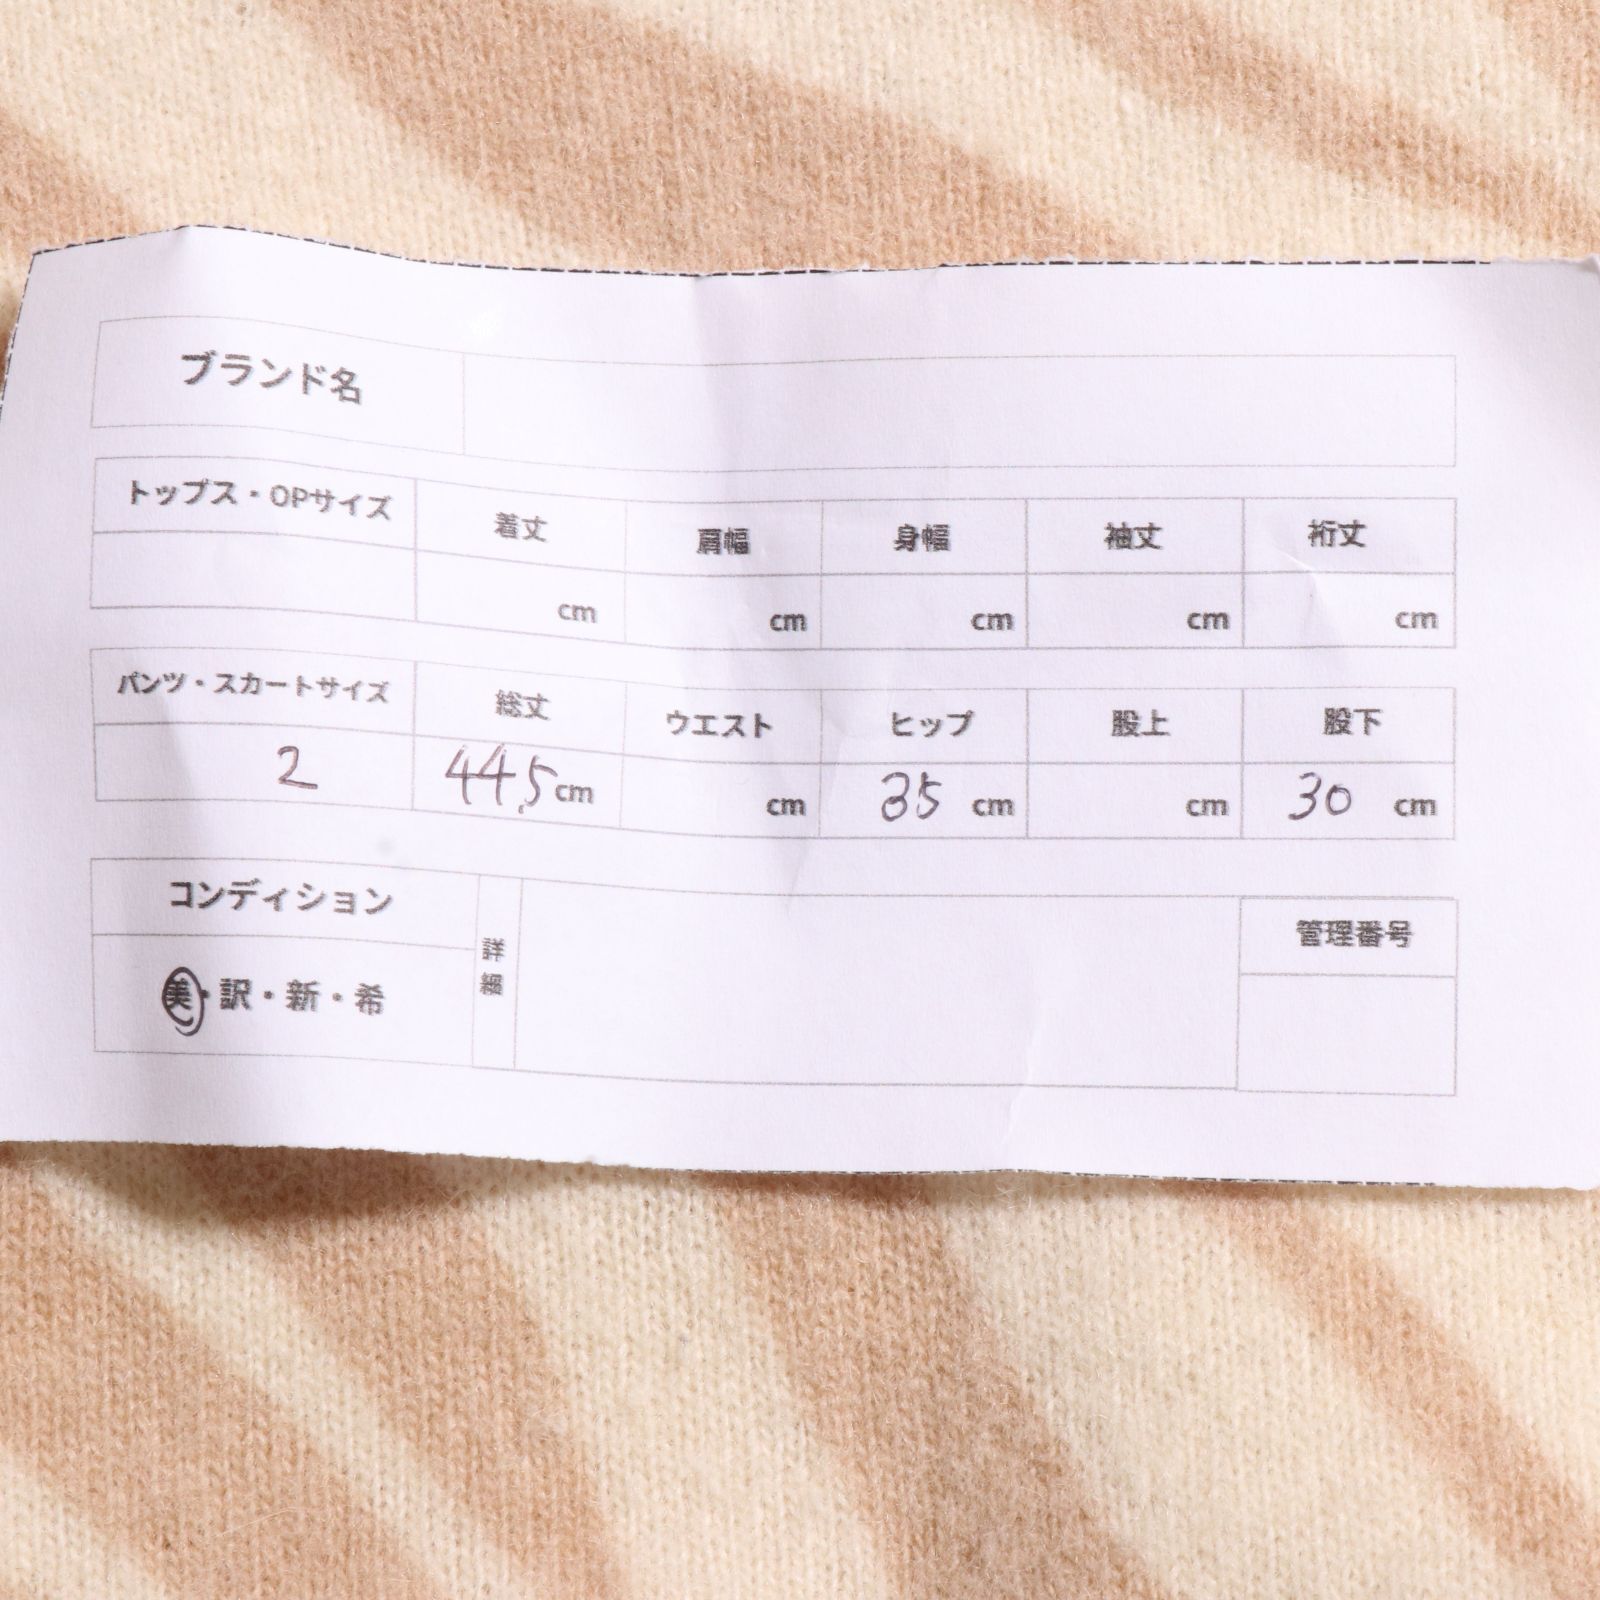 ブランド名
トップス・OPサイズ 着丈 肩幅 身幅 袖丈 裄丈
cm cm cm cm cm
パンツ・スカートサイズ 総丈 ウエスト ヒップ 股上 股下
2 44.5cm cm 35 cm cm 30 cm
コンディション 詳細 管理番号
美・訳・新・希